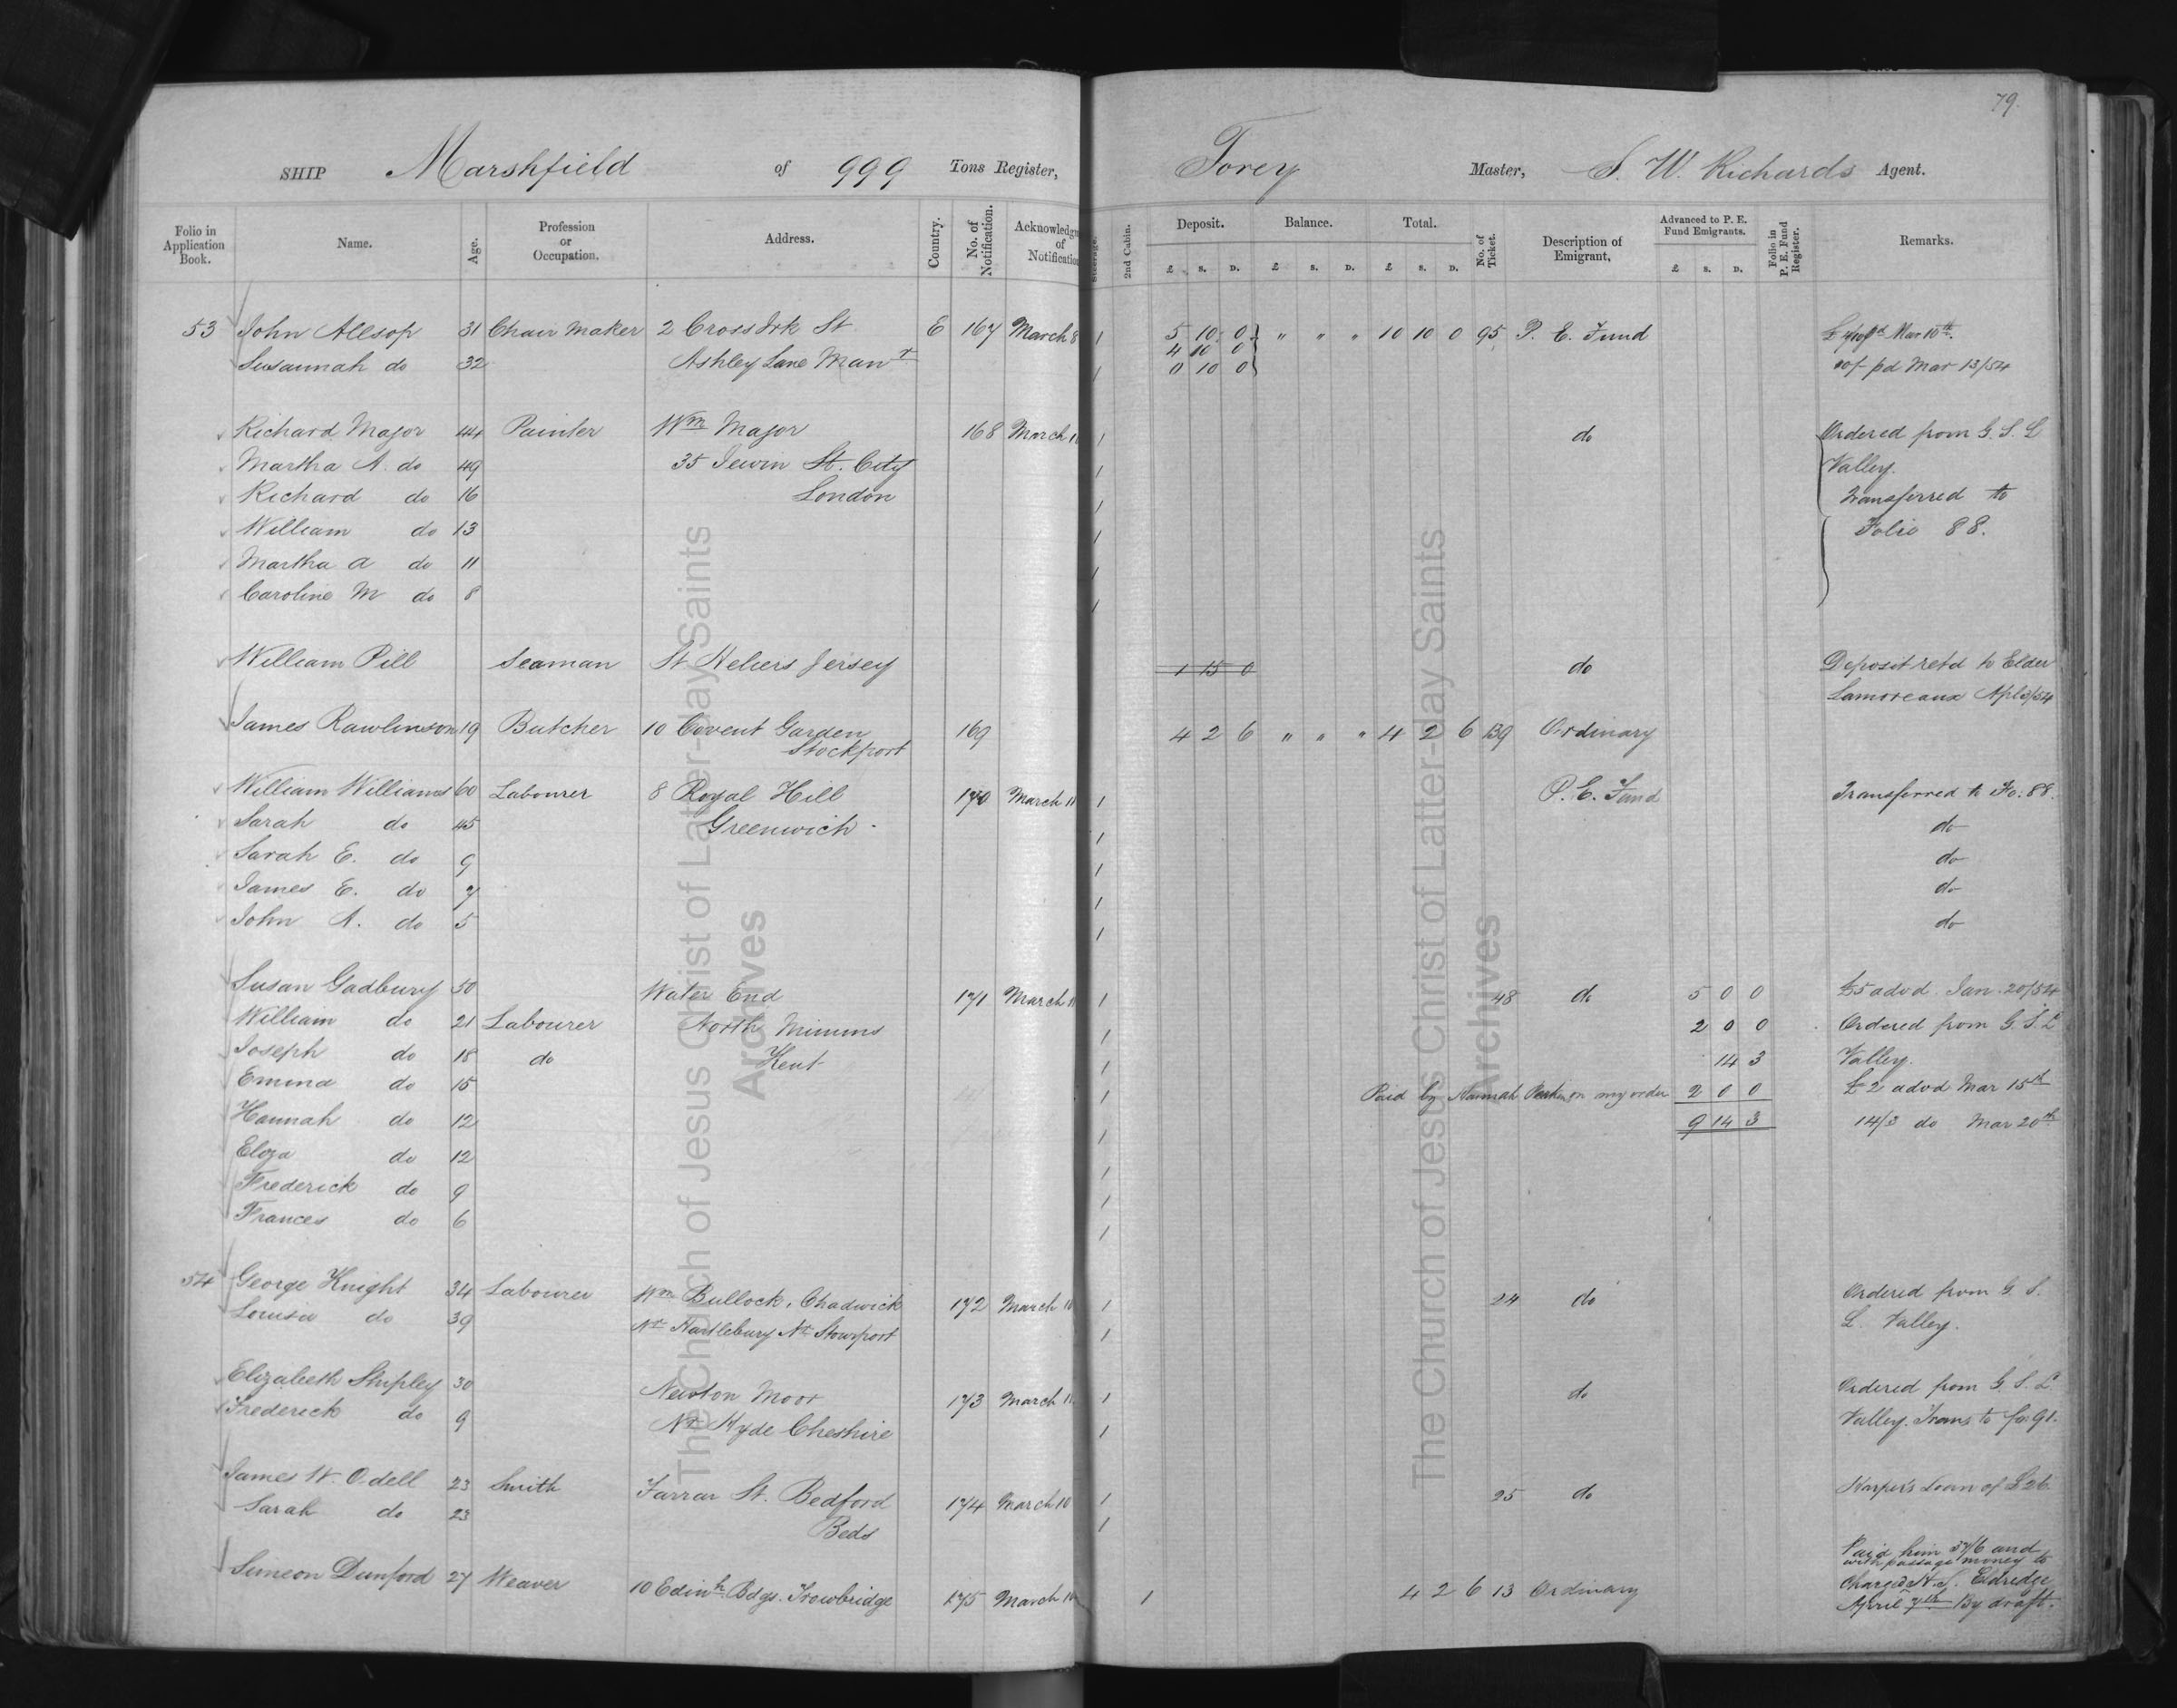 79.
SHIP Marshfield of 999 Tons Register, Torey Master, S. W. Richards Agent.
Folio in Application Book. Name. Age. Profession or Occupation. Address. Country. No. of Notification. Acknowledgm of Notification Steerage. 2nd Cabin. Deposit. £ S. D. Balance. £ S. D. Total. £ S. D. No. of Ticket. Description of Emigrant, Advanced to P. E. Fund Emigrants. £ S. D. Folio in P. E. Fund Register. Remarks.
53 John Allsop 31 Chair Maker 2 Cross Irk St E 167 March 8 1 5 10 0 " " " 10 10 0 95 P. E. Fund Mar 10th
4 10 0
Susannah do 32 Ashley Lane Manr 1 0 10 0 pd Mar 13/54
Richard Major 44 Painter Wm Major 168 March 1 do Ordered from G. S. L
Martha A. do 49 35 Jewin St. City 1 Valley.
Richard do 16 London 1 Transferred to
William do 13 1 Folio 88.
Martha A do 11 1
Caroline M do 8 1
William Pill Seaman St Heliers Jersey 1 15 0 do Deposit retd to Elder
Lamoreaux Apl 3/54
James Rawlinson 19 Butcher 10 Covent Garden 169 4 2 6 " " " 4 2 6 139 Ordinary
Stockport
William Williams 60 Labourer 8 Royal Hill 170 March 11 1 P. E. Fund Transferred to Fo. 88.
Sarah do 45 Greenwich 1 do
Sarah E. do 9 1 do
James E. do 7 1 do
John A. do 5 1 do
Susan Gadbury 50 Water End 171 March 11 1 48 do 5 0 0 £5 advd Jan. 20/54
William do 21 Labourer North Mimms 1 2 0 0 Ordered from G. S. L
Joseph do 18 do Kent 1 14 3 Valley.
Emma do 15 1 Paid by Hannah on my order 2 0 0 £2 advd Mar 15th
Hannah do 12 1 9 14 3 14/3 do Mar 20th
Eliza do 12 1
Frederick do 9 1
Frances do 6 1
54 George Knight 34 Labourer Wm Bullock, Chadwick 172 March 10 1 24 do Ordered from G. S.
Louisa do 39 Nr Hartlebury Nr Stourport 1 L. Valley.
Elizabeth Shipley 30 Newton Moor 173 March 11 1 do Ordered from G. S. L
Frederick do 9 Nr Hyde Cheshire 1 Valley. Trans to fo. 91.
James W. Odell 23 Smith Farrar St. Bedford 174 March 10 1 25 do Harper's Loan of £26
Sarah do 23 Beds 1
Simeon Dunford 27 Weaver 10 Edinh Bdgs. Trowbridge 175 March 10 1 4 2 6 13 Ordinary Paid him 57/6 and
with passage money to
charged H. S. Eldredge
April 7th By draft.
The Church of Jesus Christ of Latter-day Saints
Archives
The Church of Jesus Christ of Latter-day Saints
Archives